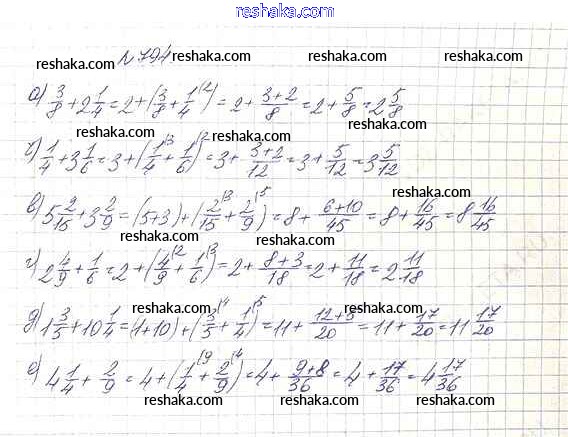 reshaka.com
№ 794
reshaka.com reshaka.com reshaka.com
а) 3/8 + 2 1/4 = 2 + (3/8 + 1/4 |2) = 2 + (3+2)/8 = 2 + 5/8 = 2 5/8
reshaka.com reshaka.com
1/4 + 3 1/6 = 3 + (1/4 |3 + 1/6 |2) = 3 + (3+2)/12 = 3 + 5/12 = 3 5/12
reshaka.com reshaka.com
в) 5 2/15 + 3 2/9 = (5+3) + (2/15 |3 + 2/9 |5) = 8 + (6+10)/45 = 8 + 16/45 = 8 16/45
reshaka.com reshaka.com
г) 2 4/9 + 1/6 = 2 + (4/9 |2 + 1/6 |3) = 2 + (8+3)/18 = 2 + 11/18 = 2 11/18
reshaka.com reshaka.com
д) 1 3/5 + 10 1/4 = (1+10) + (3/5 |4 + 1/4 |5) = 11 + (12+5)/20 = 11 + 17/20 = 11 17/20
reshaka.com reshaka.com
е) 4 1/4 + 2/9 = 4 + (1/4 |9 + 2/9 |4) = 4 + (9+8)/36 = 4 + 17/36 = 4 17/36
reshaka.com reshaka.com reshaka.com